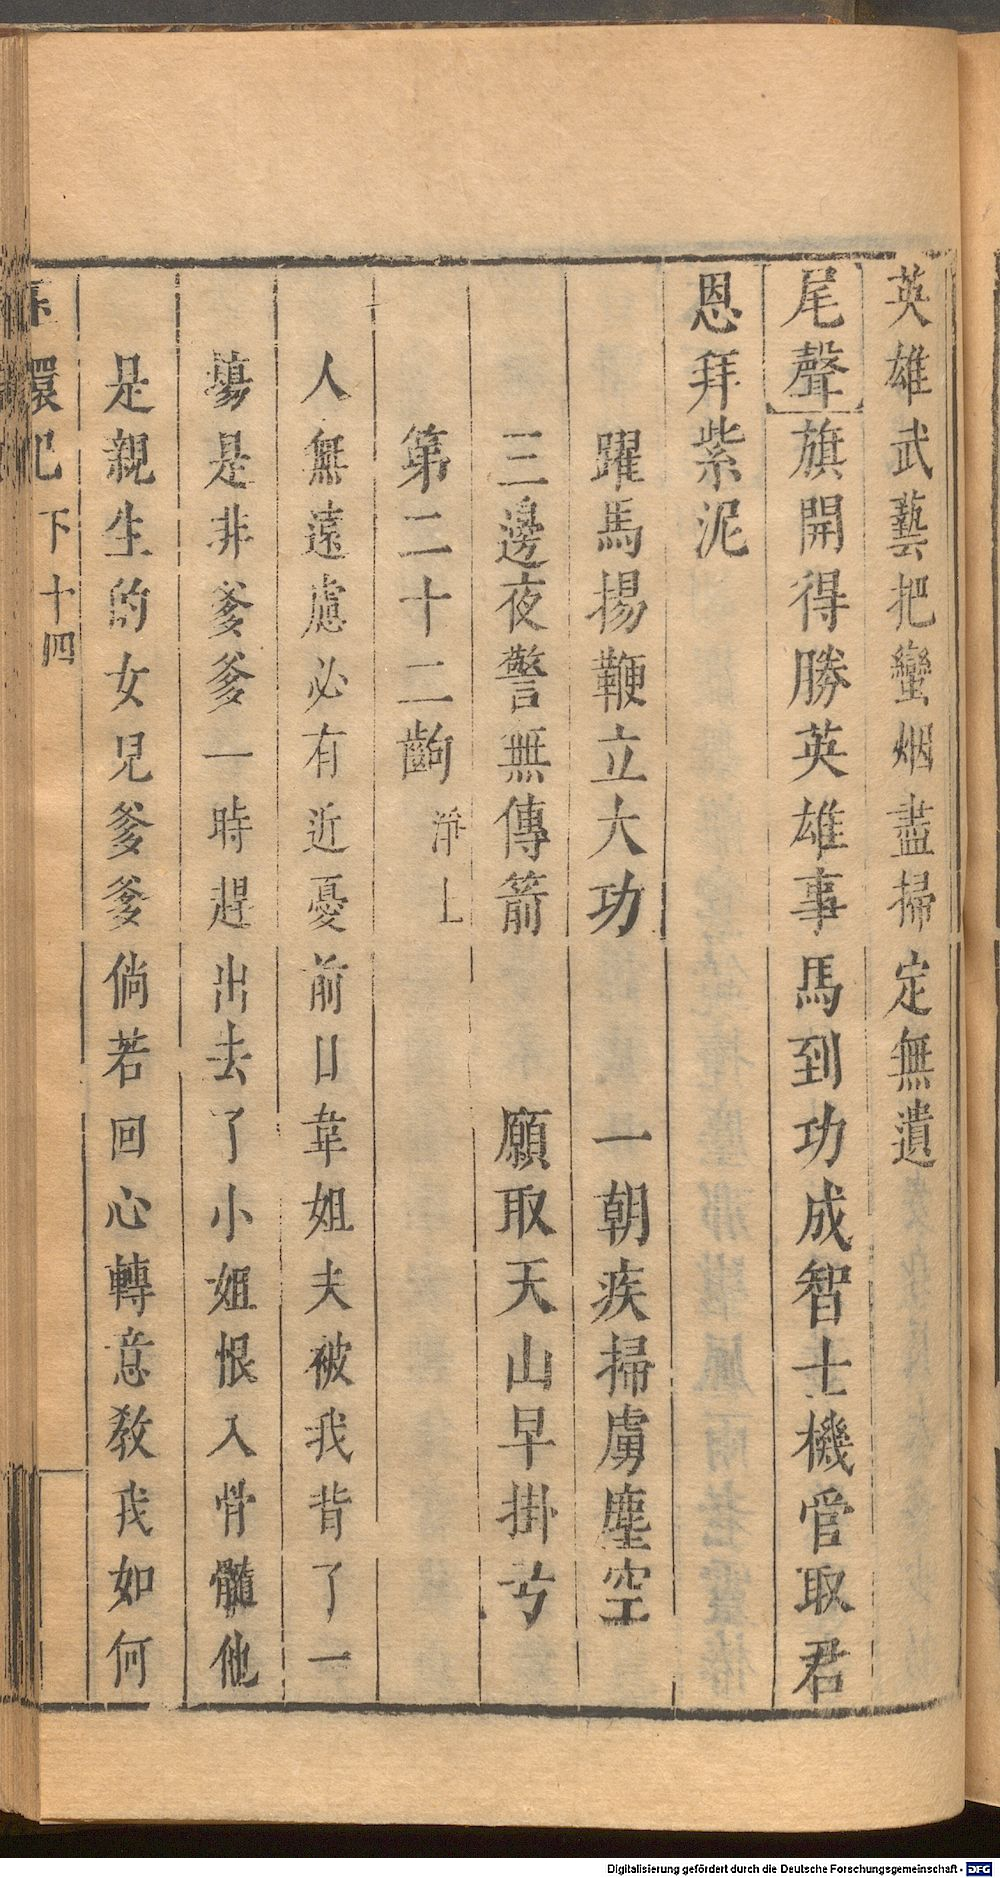 英雄武藝把蠻烟盡掃定無遺
尾聲旗開得勝英雄事馬到功成智士機管取君
恩拜紫泥
躍馬揚鞭立大功　一朝疾掃虜塵空
三邊夜警無傳箭　願取天山早掛弓
第二十二齣 淨上
人無遠慮必有近憂前日韋姐夫被我背了一
塲是非爹爹一時趕出去了小姐恨入骨髓他
是親生的女兒爹爹倘若回心轉意教我如何
環記 下 十四
Digitalisierung gefördert durch die Deutsche Forschungsgemeinschaft - DFG